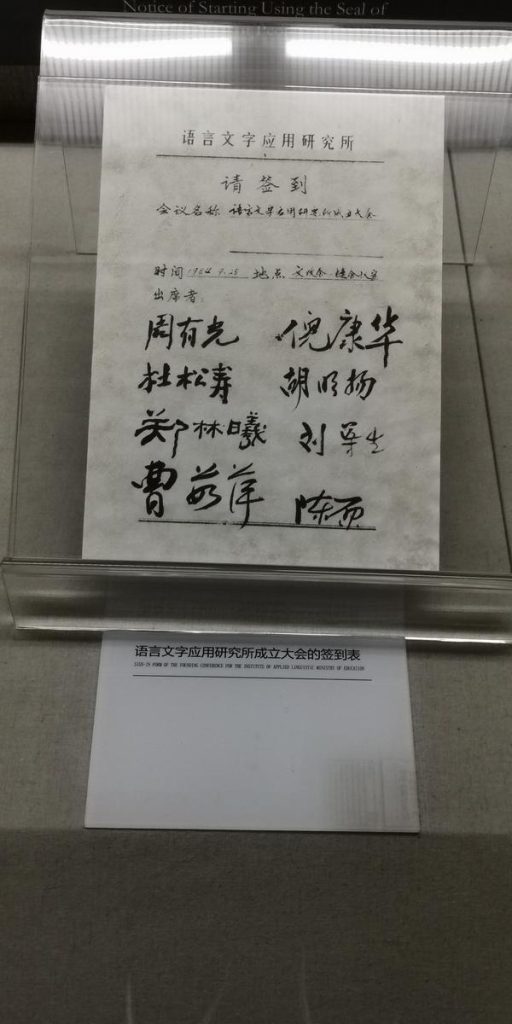 Notice of Starting Using the Seal of
语言文字应用研究所
请签到
会议名称 语言文字应用研究所成立大会
时间 1984.9.25 地点
出席者
周有光 倪康华
杜松寿 胡明扬
郑林曦 刘
曹 陈
语言文字应用研究所成立大会的签到表
SIGN-IN FORM OF THE FOUNDING CONFERENCE FOR THE INSTITUTE OF APPLIED LINGUISTIC MINISTRY OF EDUCATION